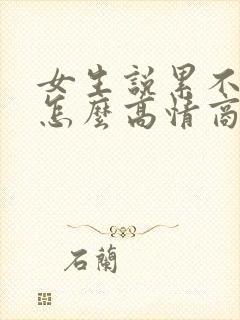 女生說累不
怎麼高情商
石蘭